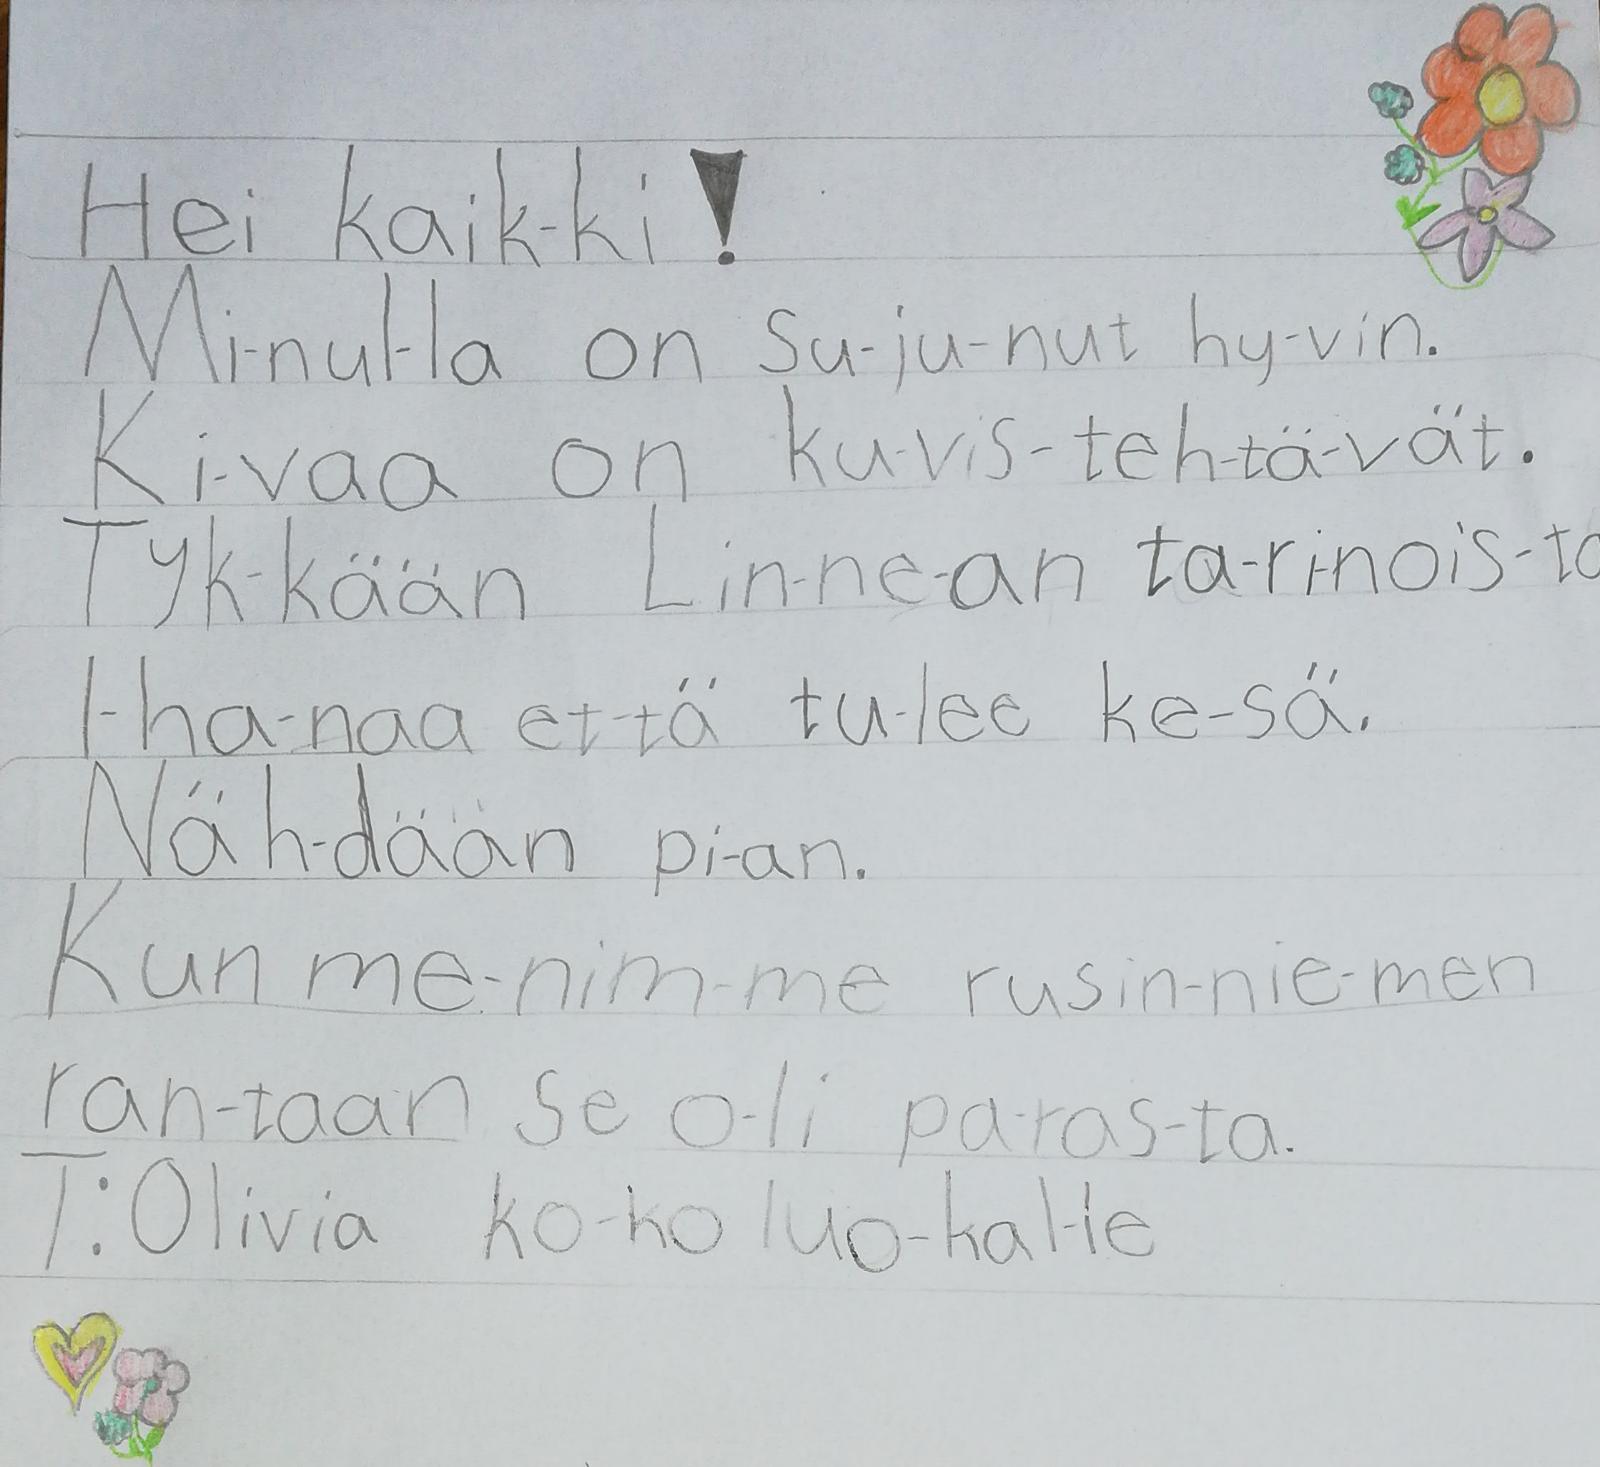 Hei kaik-ki!
Mi-nul-la on su-ju-nut hy-vin.
Ki-vaa on ku-vis-teh-tä-vät.
Tyk-kään Lin-ne-an ta-ri-nois-ta
I-ha-naa et-tä tu-lee ke-sä.
Näh-dään pi-an.
Kun me-nim-me rusin-nie-men
ran-taan se o-li pa-ras-ta.
T:Olivia ko-ko luo-kal-le